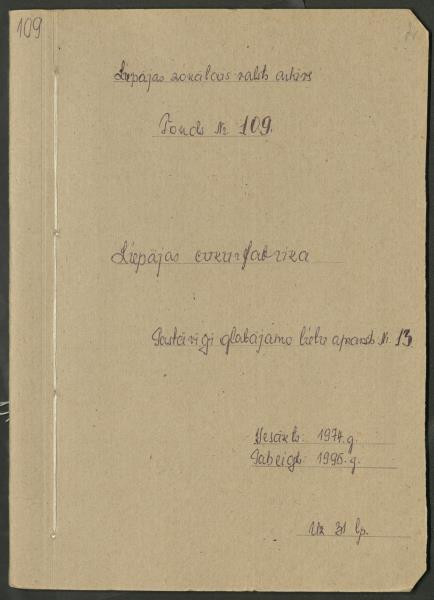 109
Liepājas zonālais valsts arhīvs
Fonds Nr 109.
Liepājas cukurfabrika
Pastāvīgi glabājamo lietu apraksts Nr. 13
Iesākts: 1974.g.
Pabeigts: 1996.g.
Uz 31 lp.